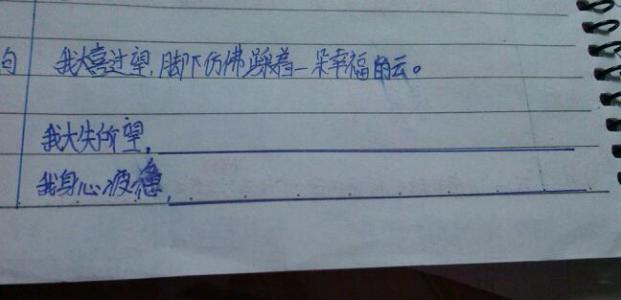 句 我大喜过望,脚下仿佛踩着一朵幸福的云。
我大失所望,
我身心疲惫,